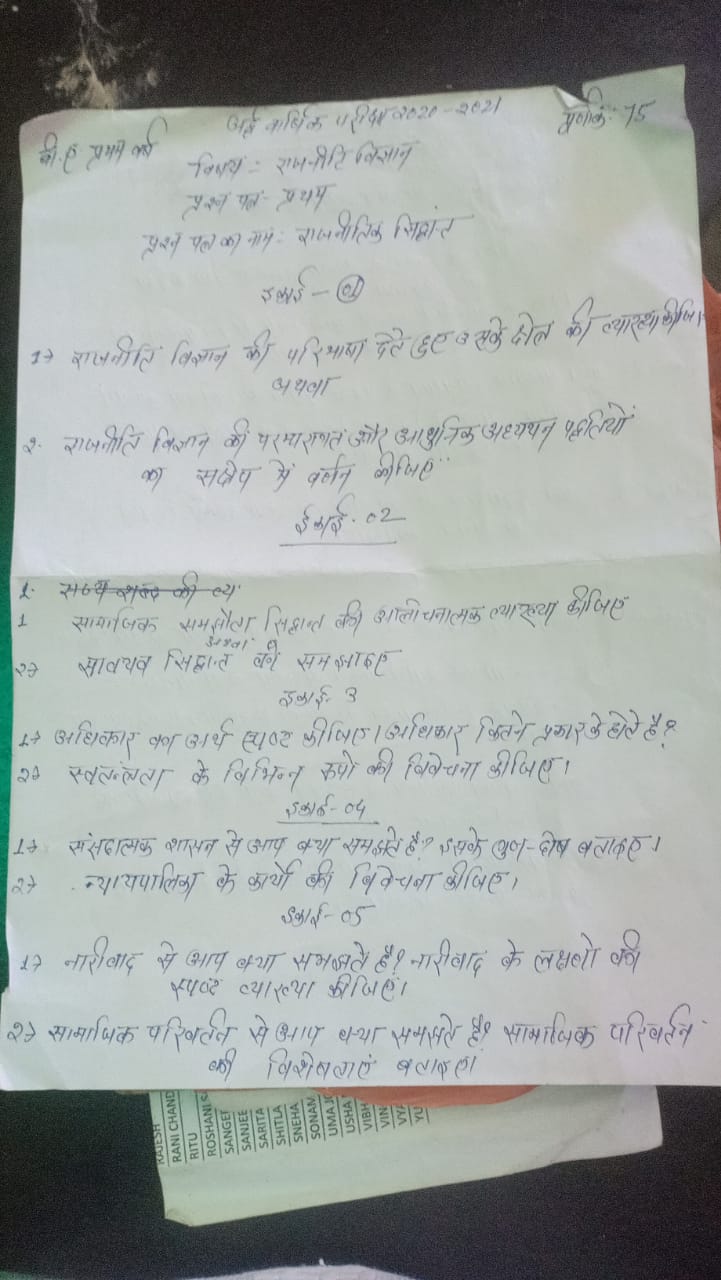 अर्द्ध वार्षिक परीक्षा 2020-2021
बी.ए प्रथम वर्ष
पूर्णांक: 75
विषय :- राजनीति विज्ञान
प्रश्न पत्र- प्रथम
प्रश्न पत्र का नाम:- राजनीतिक सिद्धांत
इकाई - 01
1→ राजनीति विज्ञान की परिभाषा देते हुए उसके क्षेत्र की व्याख्या कीजिए।
अथवा
2. राजनीति विज्ञान की परम्परागत और आधुनिक अध्ययन पद्धतियों
का संक्षेप में वर्णन कीजिए
ईकाई- 02
1. राज्य शब्द की व्य
1 सामाजिक समझौता सिद्धान्त की आलोचनात्मक व्याख्या कीजिए
अथवा
2→ सावयव सिद्धान्त को समझाइए
इकाई- 3
1→ अधिकार का अर्थ स्पष्ट कीजिए। अधिकार कितने प्रकार के होते है?
2→ स्वतन्त्रता के विभिन्न रूपो की विवेचना कीजिए।
इकाई- 04
1→ संसदात्मक शासन से आप क्या समझते है? इसके गुण-दोष बताइए।
2→ न्यायपालिका के कार्यो की विवेचना कीजिए।
इकाई- 05
1→ नारीवाद से आप क्या समझते है? नारीवाद के लक्षणो की
स्पष्ट व्याख्या कीजिए।
2→ सामाजिक परिवर्तन से आप क्या समझते है? सामाजिक परिवर्तन
की विशेषताएं बताइए।
RAJESH
RANI CHAND
RITU
ROSHANI
SANGE
SANJEE
SARITA
SHITLA
SNEHA
SONAM
UMA
USHA
VIBH
VIN
VYA
YU